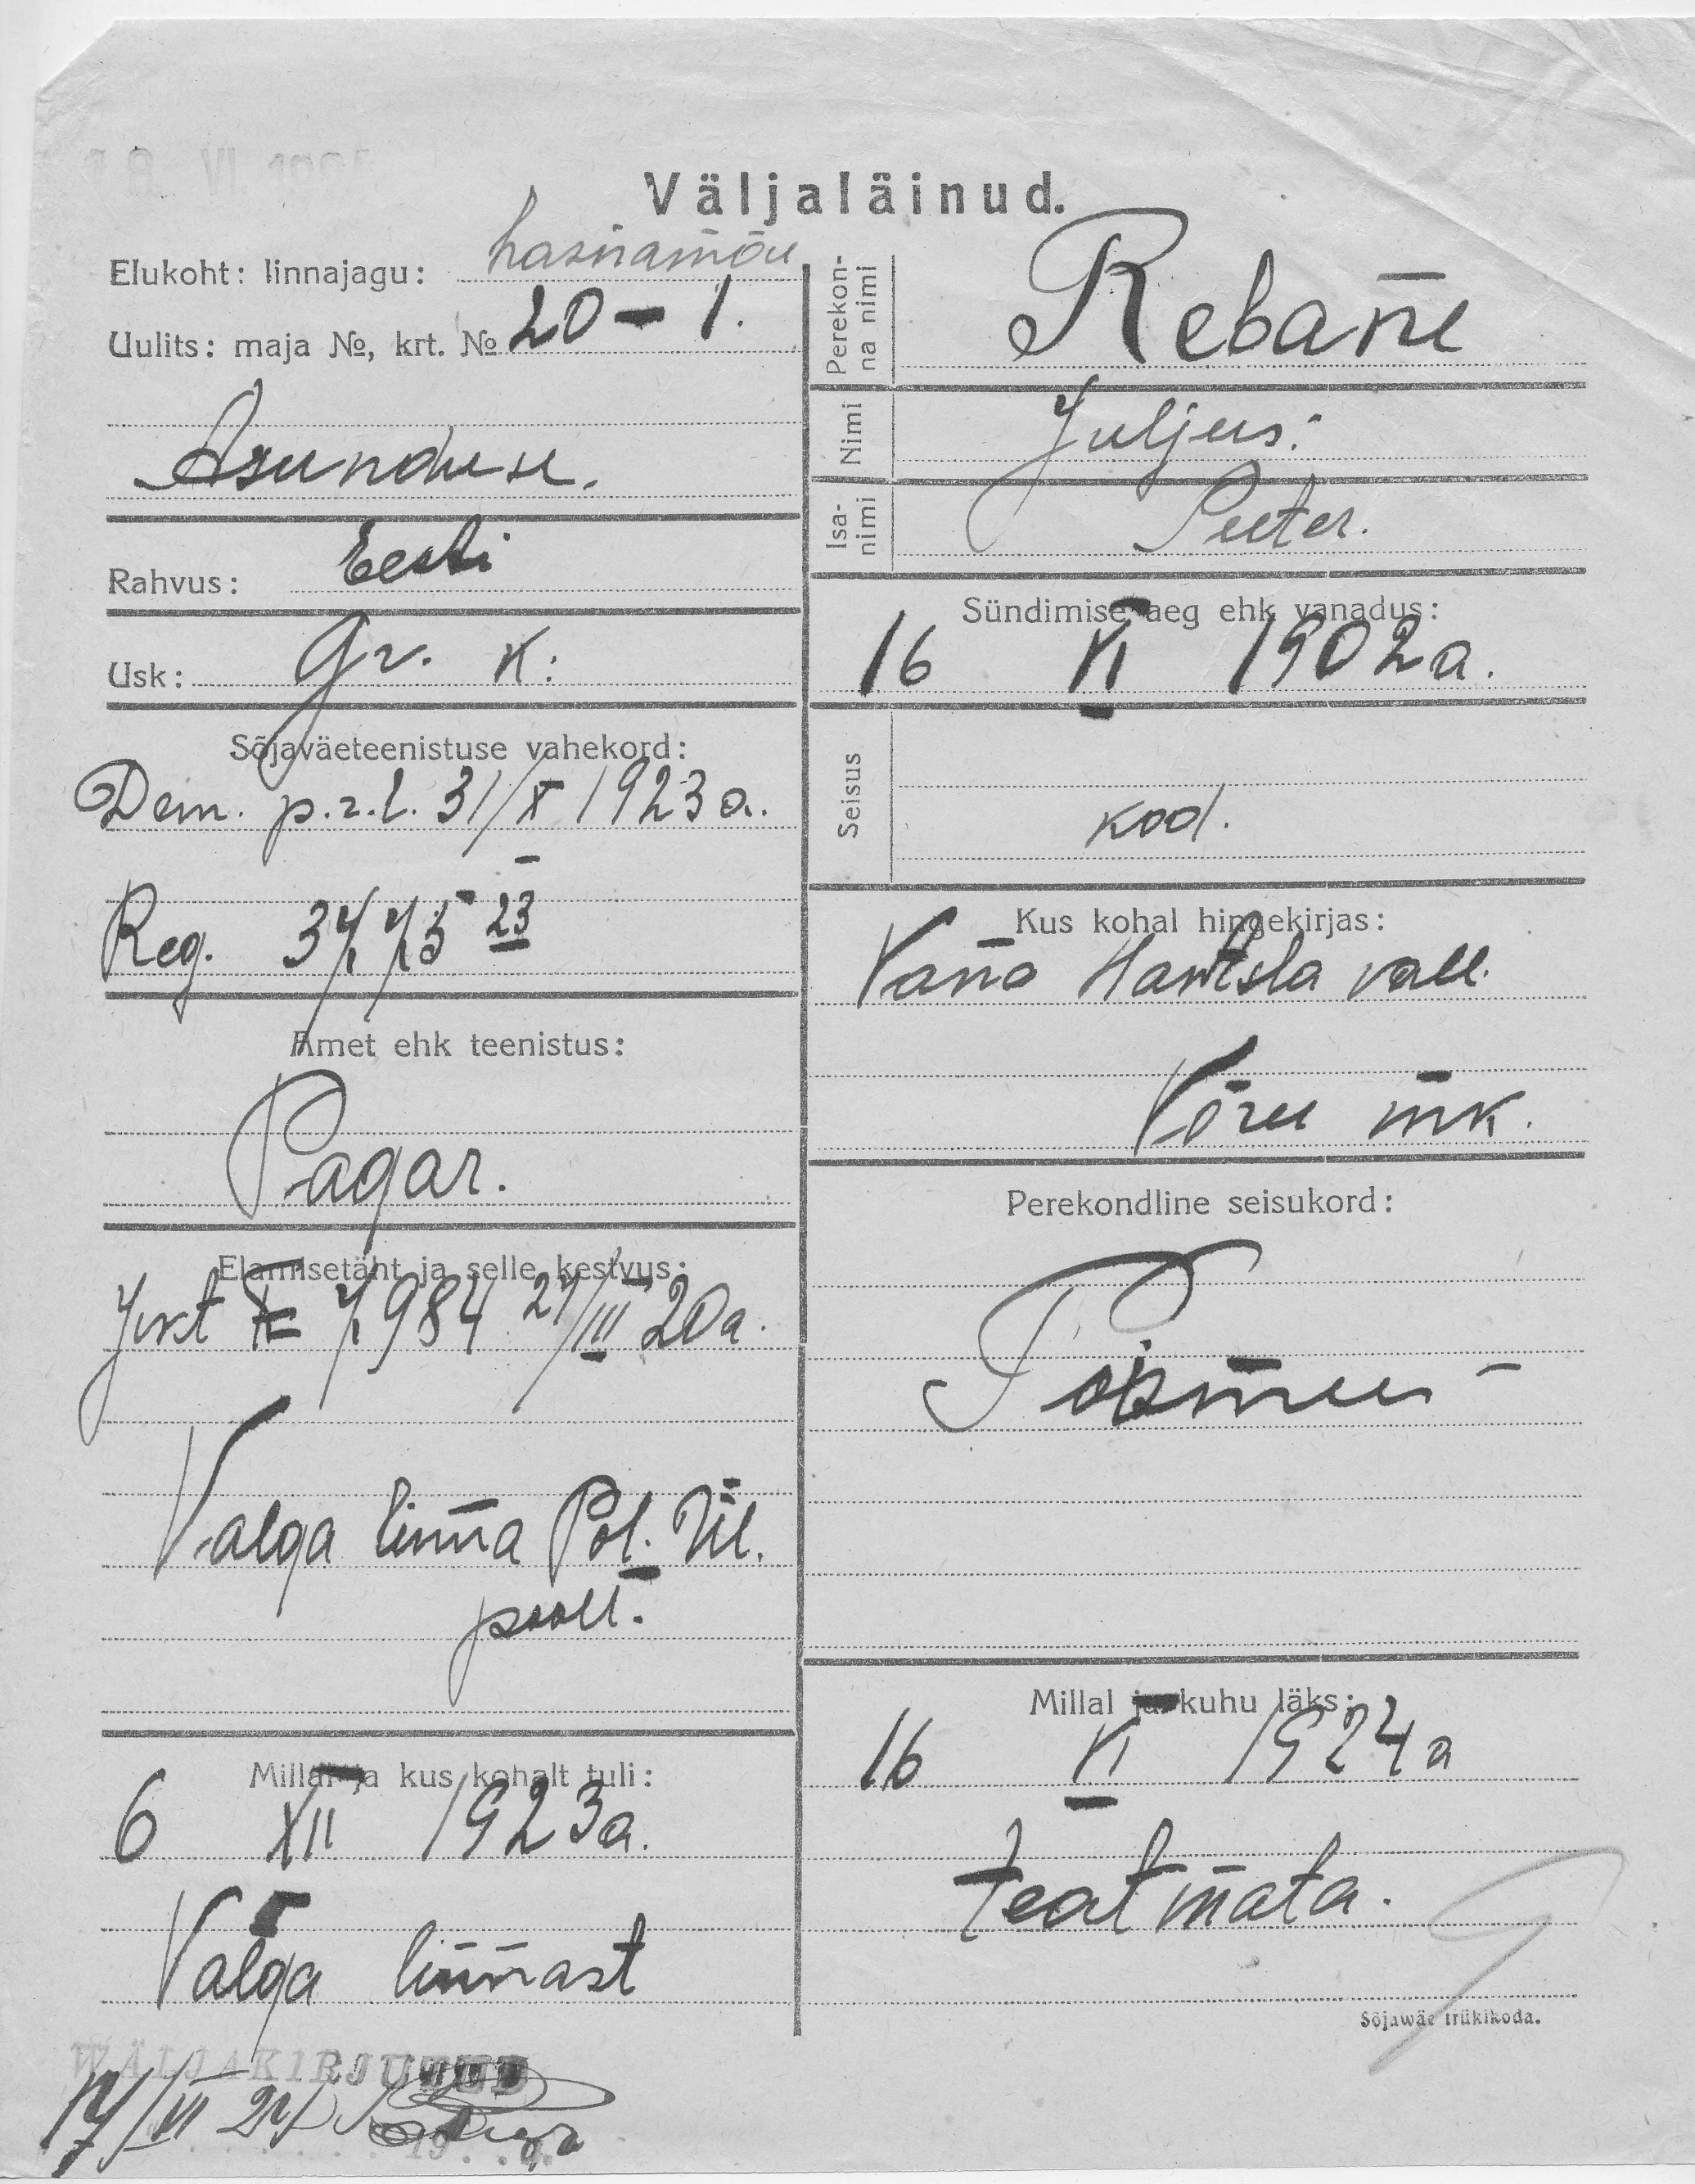 Väljaläinud.
Elukoht: linnajagu:
Uulits: maja №, krt. № 20 – 1.
Asunduse.
Rahvus: Eesti
Usk: Gr. k.
Sõjaväeteenistuse vahekord:
Dem. p.r.l. 31/X 1923 a.
Reg.
Amet ehk teenistus:
Pagar.
Elamisetäht ja selle kestvus:
7984 27/III 20a.
Valga linna Pol. Ül.
poolt.
Millal ja kus kohalt tuli:
6 XII 1923a.
Valga linnast
WÄLJAKIRJUTUD
Perekonna nimi Rebane
Nimi Juljus.
Isanimi Peeter.
Sündimise aeg ehk vanadus:
16 VI 1902a.
Seisus
kod.
Kus kohal hingekirjas:
Vana Hantsla vall.
Võru mk.
Perekondline seisukord:
Poismees
Millal ja kuhu läks:
16 VI 1924a
teatmata.
Sõjawäe trükikoda.